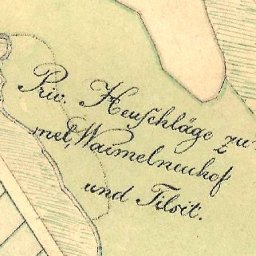 Priv. Heuschläge zu
mel, Waimelneuhof
und Tilsit.